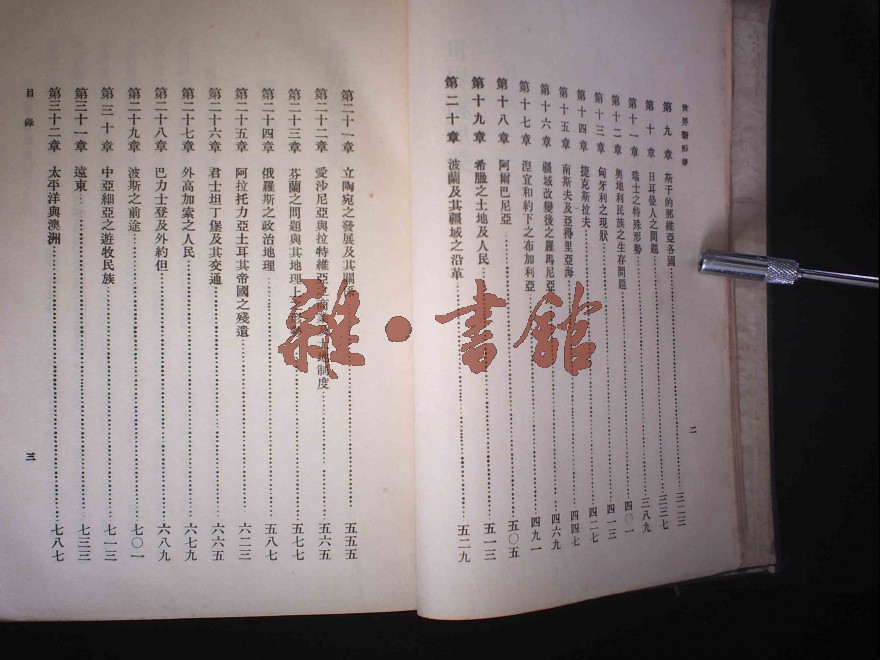 世界新形勢
第九章 斯干的那維亞各國 三二三
第十章 日耳曼人之問題 三三七
第十一章 瑞士之特殊形勢 三八九
第十二章 奧地利民族之生存問題 四〇一
第十三章 匈牙利之現狀 四一三
第十四章 捷克斯拉夫 四二七
第十五章 南斯夫及亞得里亞海 四四七
第十六章 疆域改變後之羅馬尼亞 四六九
第十七章 涅宜和約下之布加利亞 四九一
第十八章 阿爾巴尼亞 五〇五
第十九章 希臘之土地及人民 五一三
第二十章 波蘭及其疆域之沿革 五二九
二
第二十一章 立陶宛之發展及其關係 五五五
第二十二章 愛沙尼亞與拉特維亞之 土地制度 五六五
第二十三章 芬蘭之問題與其地理上 五七七
第二十四章 俄羅斯之政治地理 五八七
第二十五章 阿拉托力亞土耳其帝國之殘遺 六二三
第二十六章 君士坦丁堡及其交通 六六五
第二十七章 外高加索之人民 六七九
第二十八章 巴力士登及外約但 六八九
第二十九章 波斯之前途 七〇一
第三十章 中亞細亞之遊牧民族 七一三
第三十一章 遠東 七三三
第三十二章 太平洋與澳洲 七八七
目錄
三
雜·書館